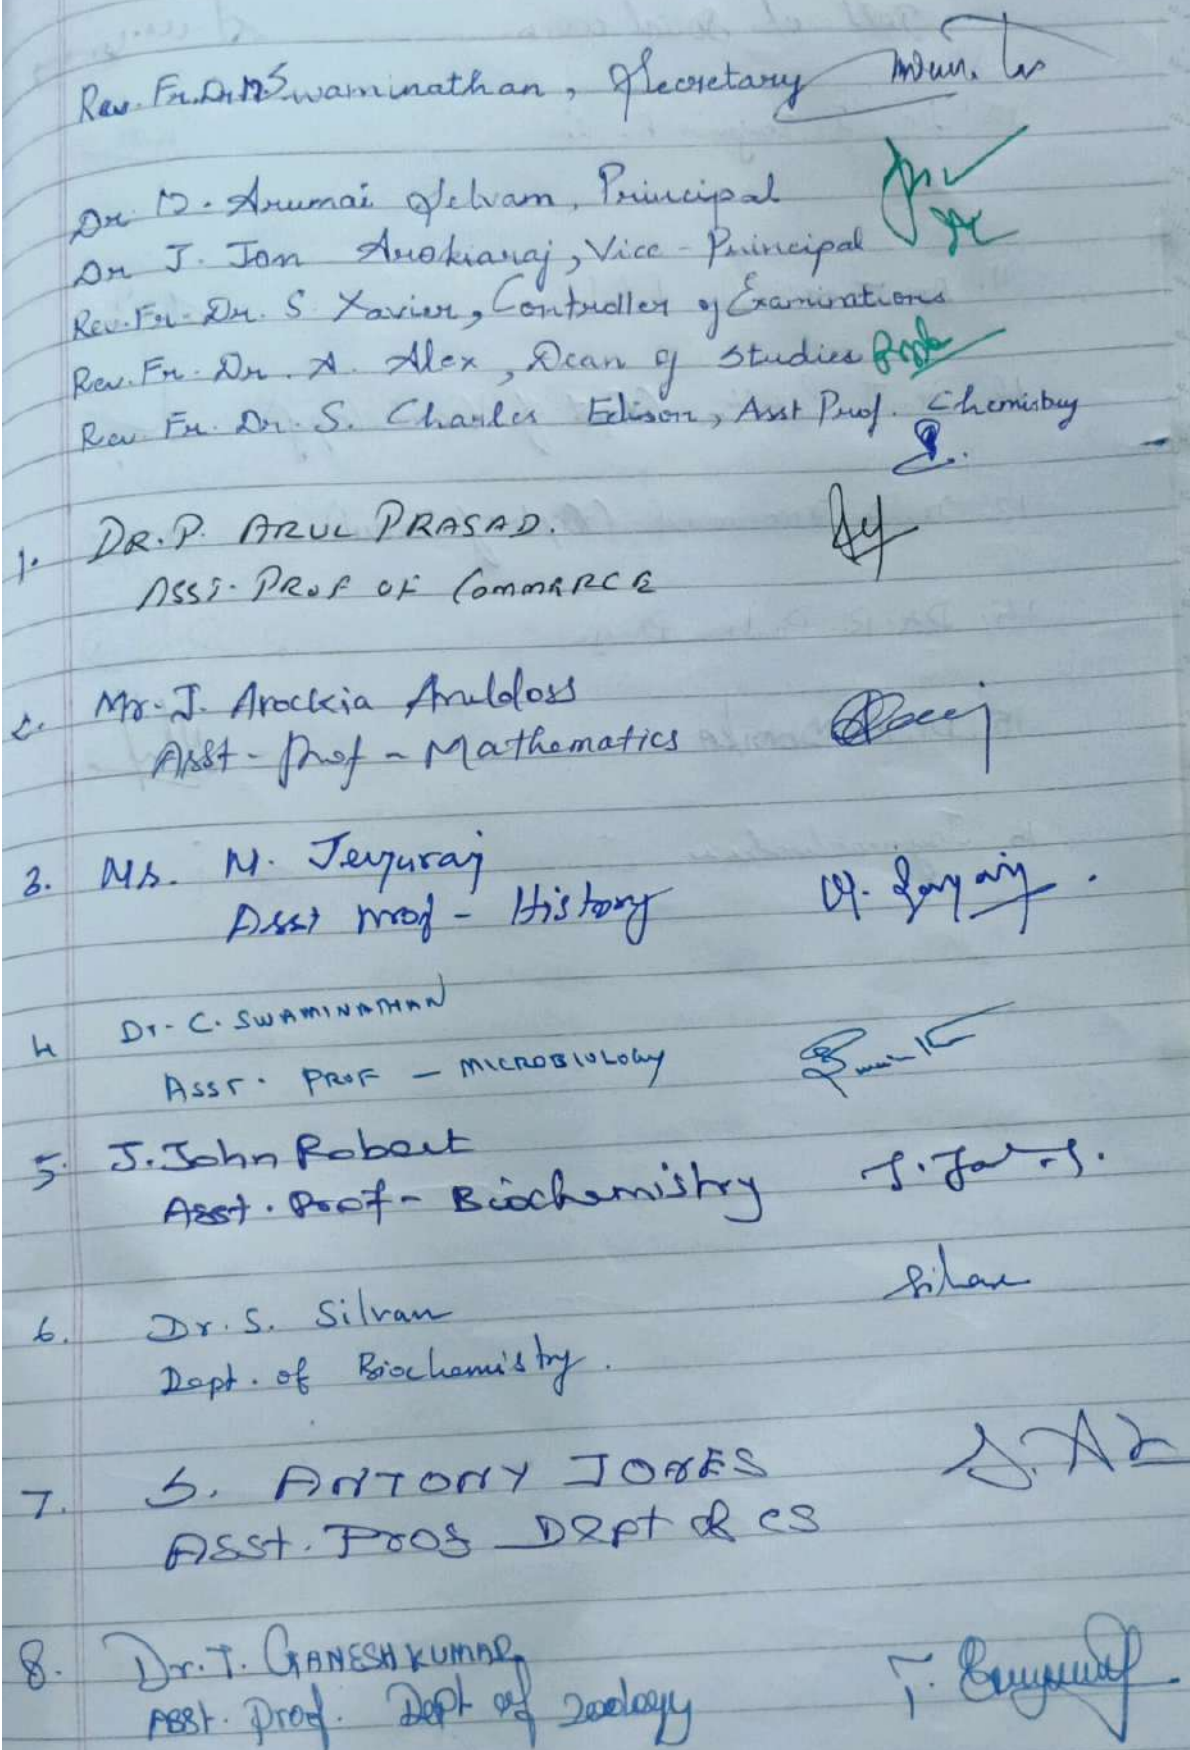 Rev. Fr. Dr. M Swaminathan, Secretary
Dr D. Arumai Selvam, Principal
Dr J. Jon Arokiaraj, Vice-Principal
Rev. Fr. Dr. S. Xavier, Controller of Examinations
Rev. Fr. Dr. A. Alex, Dean of Studies
Rev Fr. Dr. S. Charles Edison, Asst Prof. Chemistry
1. DR. P. ARUL PRASAD.
ASST. PROF OF COMMARCE
2. Mr. J. Arockia Aruldoss
Asst - Prof - Mathematics
3. Ms. M. Jeyaraj
Asst Prof - History
4 Dr. C. SWAMINATHAN
ASST. PROF - MICROBIOLOGY
5. J. John Robert
Asst. Prof - Biochemistry J.
6. Dr. S. Silvan Silvan
Dept. of Biochemistry.
7. S. ANTONY JONES
ASSt. Prof Dept of CS
8. Dr. T. GANESH KUMAR
ASSt. Prof. Dept of Zoology T.